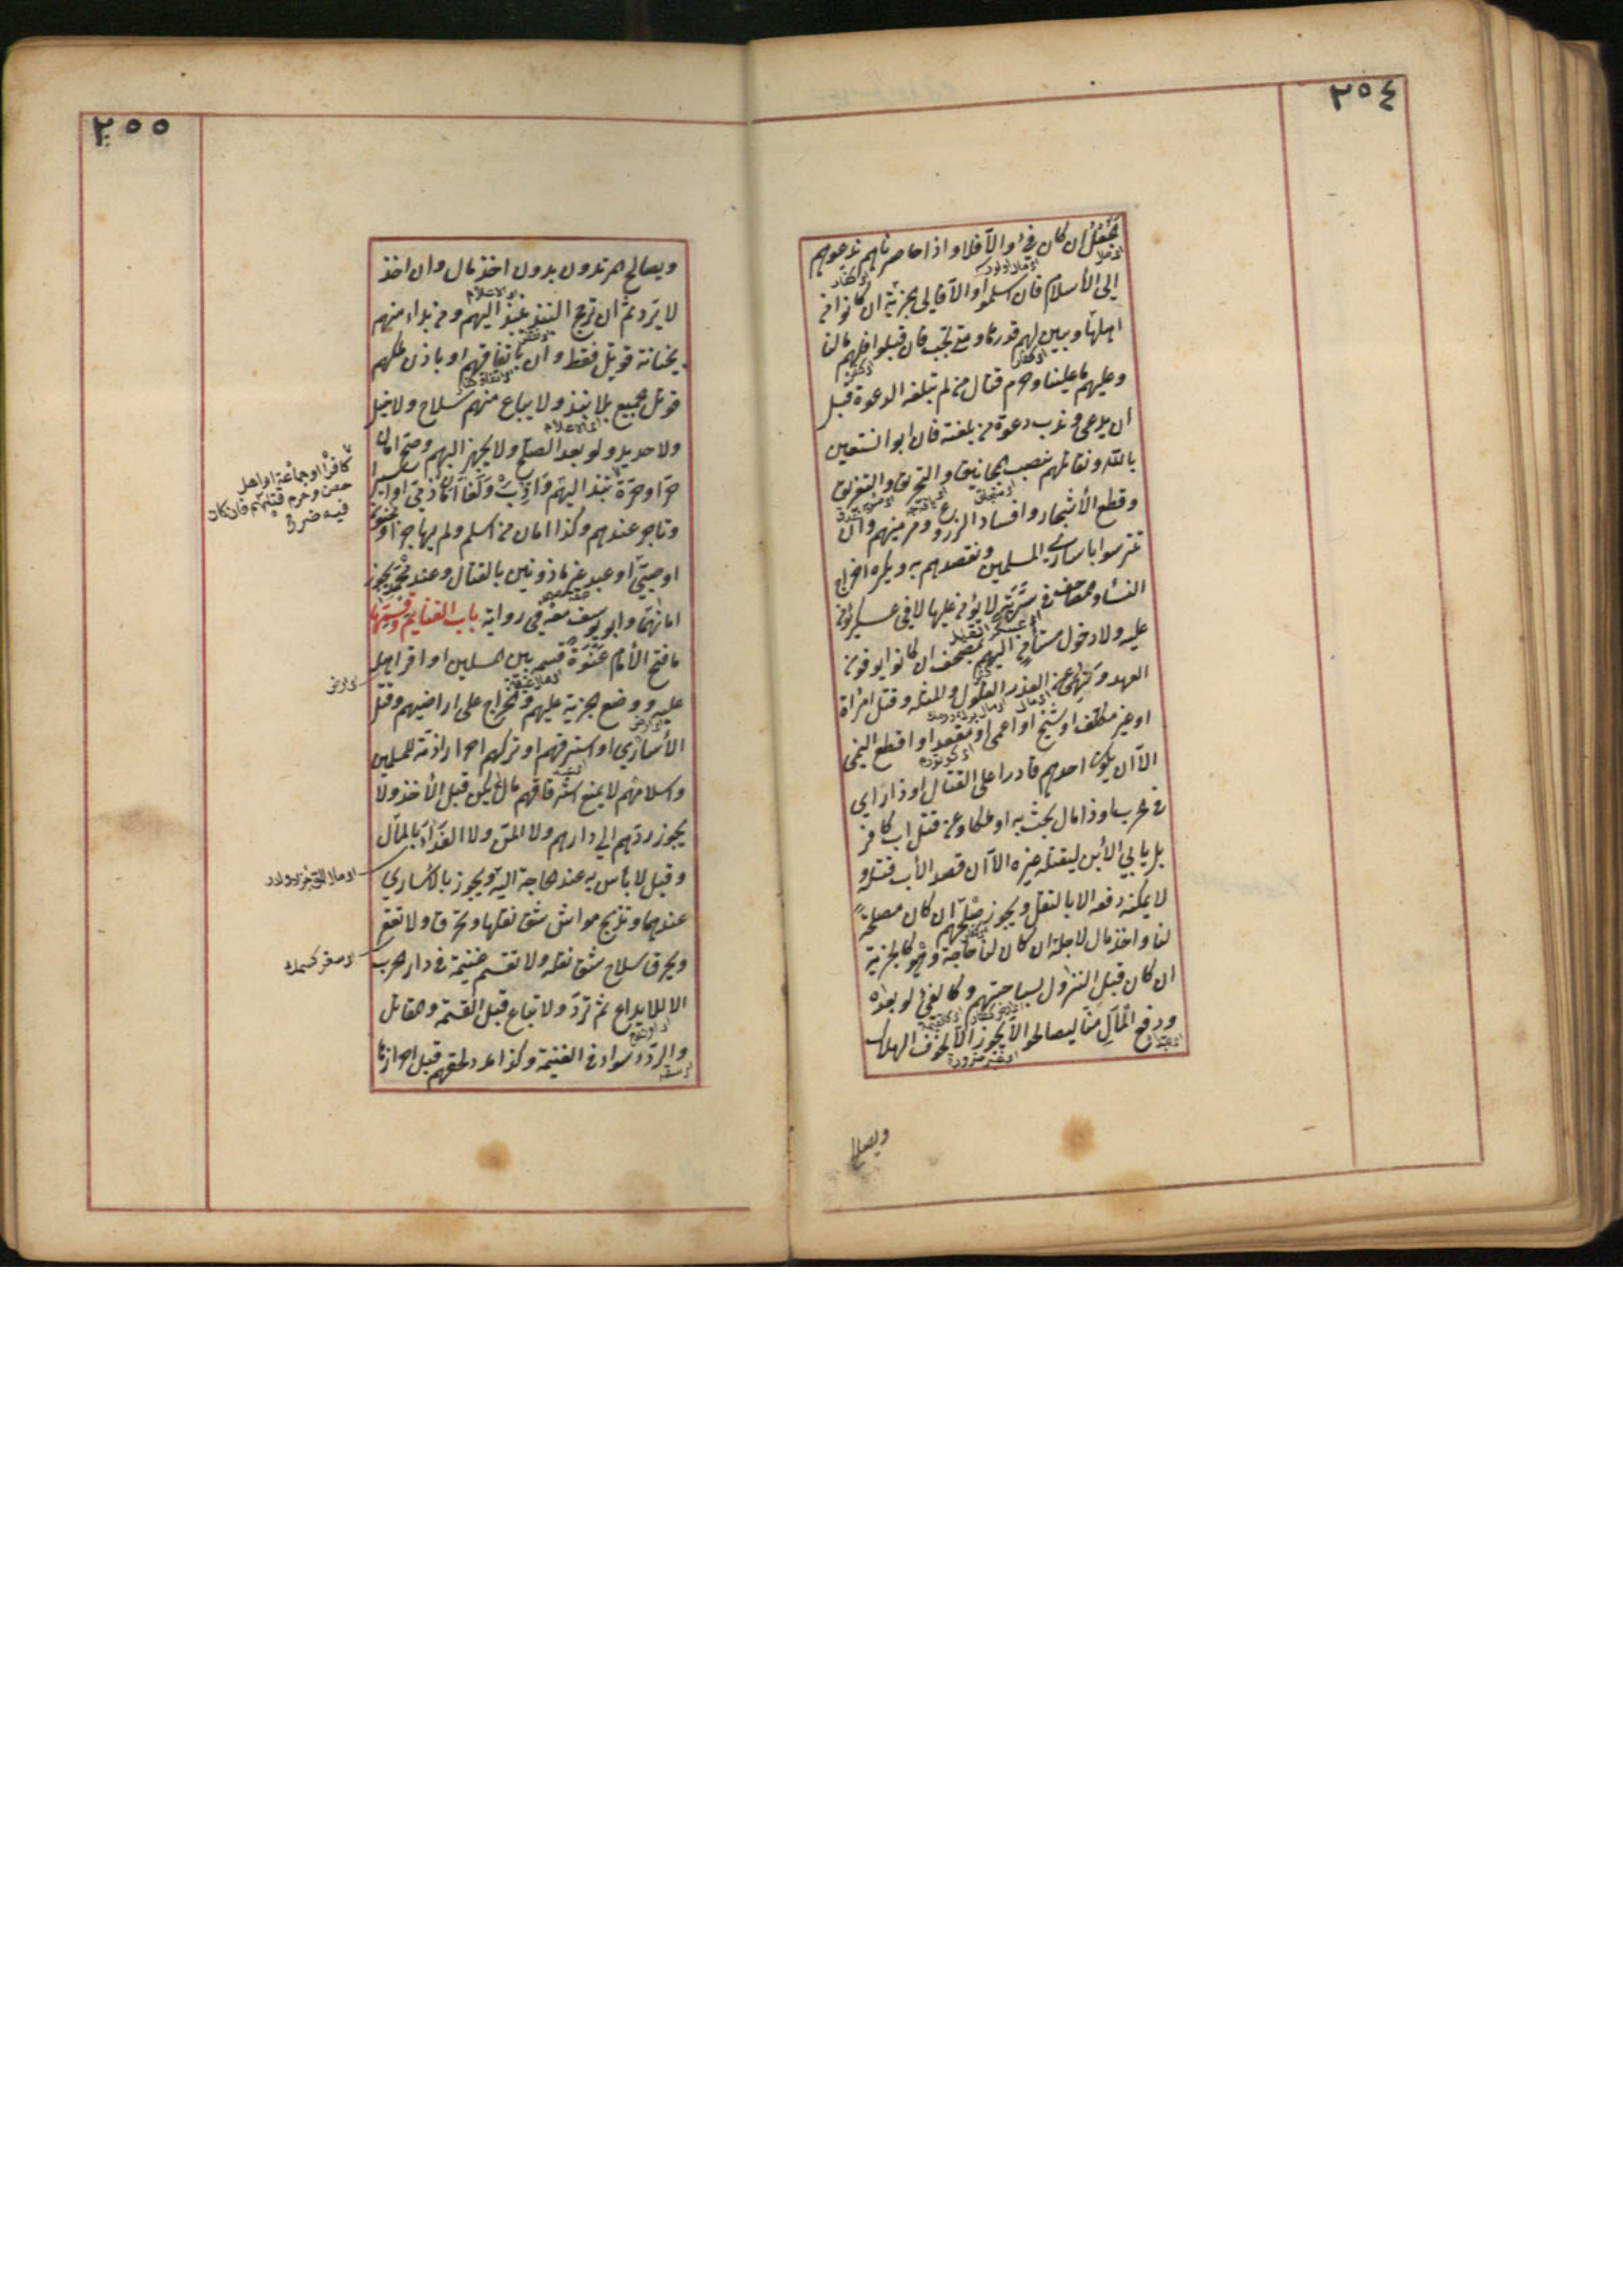 ٢٥٤
الجعل ان كان فئ والا فلا واذا حاصرناهم ندعوهم
الى الأسلام فان اسلموا والا فالى الجزية ان كانوا من
اهلها ويبين لهم قدرها ومتى تجب فان قبلوا فلهم مالنا
وعليهم ما علينا وحرم قتال من لم تبلغه الدعوة قبل
ان يدعى وندب دعوة من بلغته فان ابوا نستعين
بالله ونقاتلهم بنصب المجانيق والتحريق والتغريق
وقطع الأشجار وافساد الزرع ونرميهم وان
تترسوا باسارى المسلمين ونقصدهم به ويكره اخراج
النساء والمصاحف في سرية لا يؤمن عليها لا في عسكر يؤمن
عليه ولا دخول مستأمن اليهم بمصحف ان كانوا يوفون
العهد ونهى عن الغدر والغلول والمثله وقتل امرأة
او غير مكلف او شيخ او اعمى او مقعد او اقطع اليمنى
الا ان يكون احدهم قادرا على القتال او ذا رأي
في الحرب او ذا مال يحث به او ملكا وعن قتل اب كافر
بل يأبى الأبن ليقتله غيره الا ان قصد الأب قتله و
لا يمكنه دفعه الا بالقتل ويجوز صلحهم ان كان مصلحة
لنا واخذ مال لاجله ان كان لنا حاجة وهو كالجزية
ان كان قبل النزول بساحتهم وكالفئ لو بعده
ودفع المال منا ليصالحوا لا يجوز الا لخوف الهلاك
ويصالح
٢٥٥
ويصالح المرتدون بدون اخذ مال وان اخذ
لا يرد ثم ان ترجح النبذ ينبذ اليهم ومن بدأ منهم
بخيانة قوتل فقط وان باتفاقهم او باذن ملكهم
قوتل الجميع بلا نبذ ولا يباع منهم سلاح ولا خيل
ولا حديد ولو بعد الصلح ولا يجهز اليهم وصح امان
حر او حرة نبذ اليهم وادب ولغا امان ذمي او اسير
وتاجر عندهم وكذا امان من اسلم ولم يهاجر او مجنون
او صبي او عبد غير مأذونين بالقتال وعند محمد يجوز
امانهما وابو يوسف معه في رواية باب الغنايم وقسمتها
ما فتح الأمام عنوة قسم بين المسلمين او اقر اهله
عليه ووضع الجزية عليهم والخراج على اراضيهم وقتل
الأسارى او استرقهم او تركهم احرارا ذمة للمسلمين
واسلامهم لا يمنع استرقاقهم مالم يكن قبل الأخذ ولا
يجوز ردهم الى دارهم ولا المن ولا الفداء بالمال
وقيل لا بأس به عند الحاجة اليه ويجوز بالأسارى
عندهما وتذبح مواش شق نقلها وتحرق ولا تعقر
ويحرق سلاح شق نقله ولا تقسم غنيمة في دار الحرب
الا للايداع ثم ترد ولا تباع قبل القسمة والمقاتل
والردء سواء في الغنيمة وكذا مدد لحقهم قبل احرازها
كافرا او جماعة او اهل
حصن وحرم قتلهم فان كان
فيه ضرر